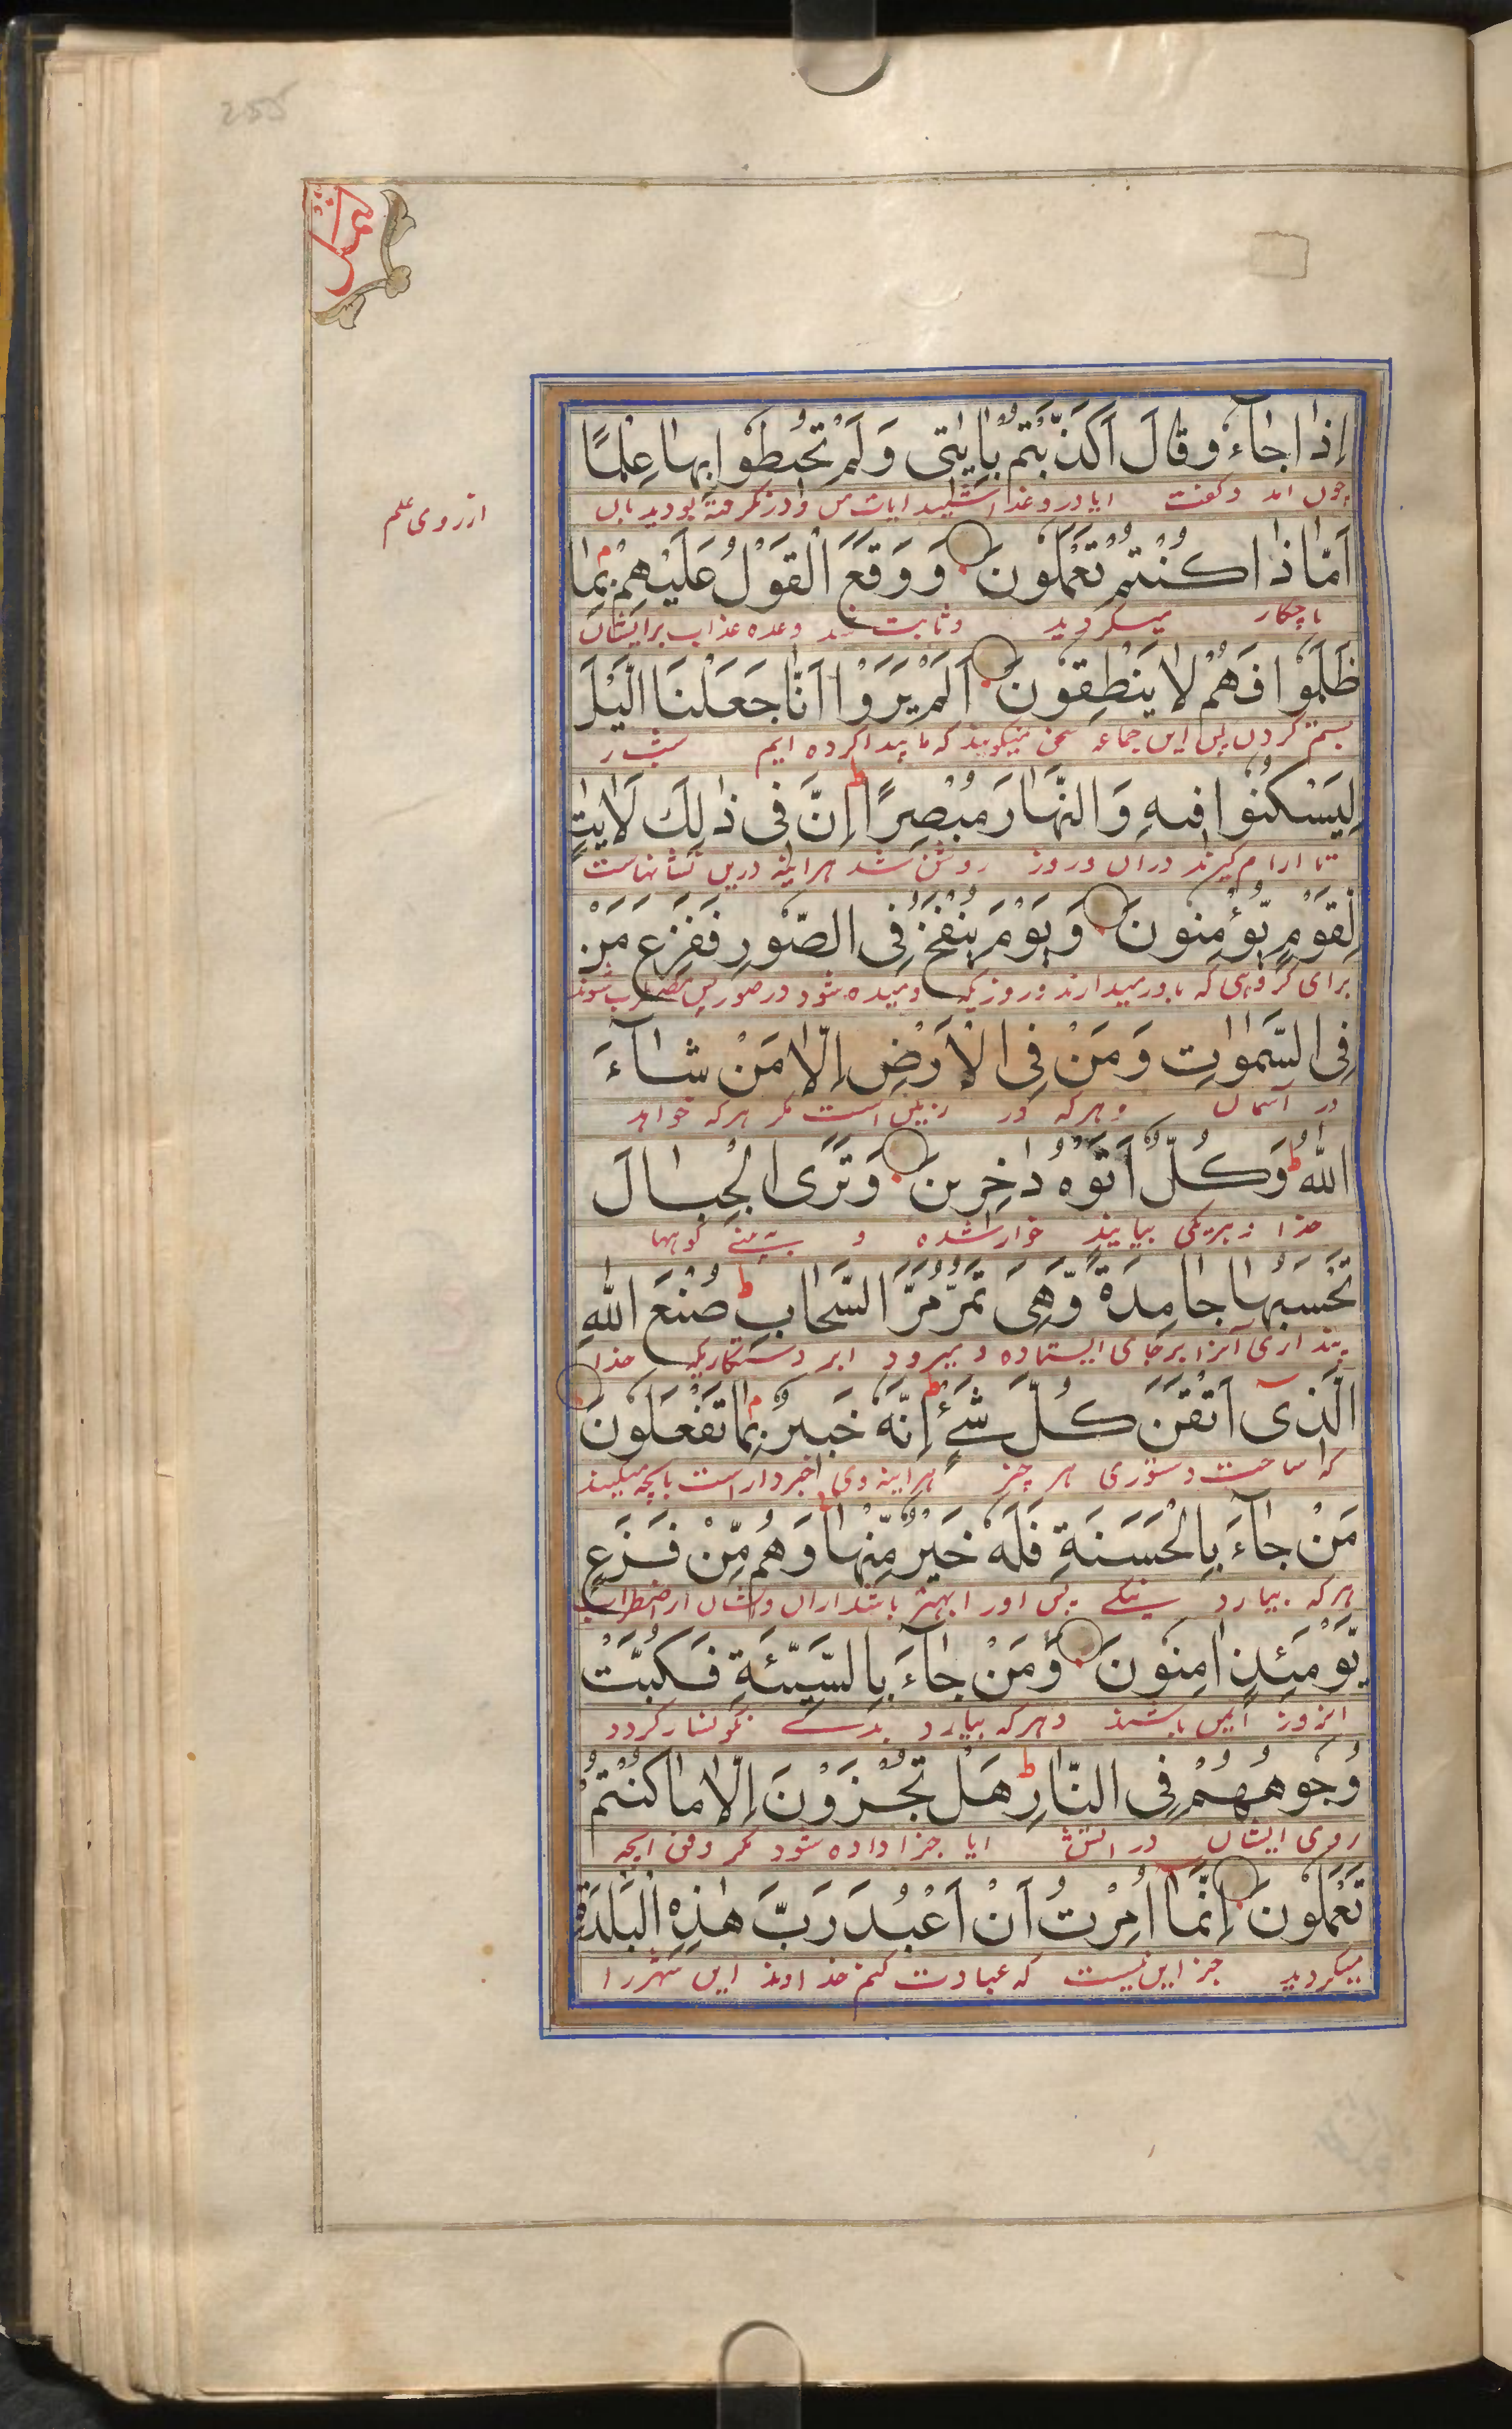 255
النمل
إِذَا جَآءُو قَالَ أَكَذَّبْتُمْ بِاٰيٰتِى وَلَمْ تُحِيطُوا بِهَا عِلْمًا
چون آمد و گفت ایا دروغ داشتید ایات من و در نگرفته بودید بان
از روی علم
أَمَّا ذَا كُنْتُمْ تَعْمَلُونَ وَوَقَعَ الْقَوْلُ عَلَيْهِمْ بِمَا
یا چکار میکردید و ثابت شد وعده عذاب بر ایشان
ظَلَمُوا فَهُمْ لَا يَنْطِقُونَ أَلَمْ يَرَوْا أَنَّا جَعَلْنَا الَّيْلَ
بستم کردن پس این جماعه سخن نمیکویند که ما پیدا کرده ایم شب را
لِيَسْكُنُوا فِيهِ وَالنَّهَارَ مُبْصِرًا ط إِنَّ فِى ذٰلِكَ لَاٰيٰتٍ
تا ارام گیرند دران و روز روشن شد هراینه درین نشانهاست
لِّقَوْمٍ يُّؤْمِنُونَ وَيَوْمَ يُنْفَخُ فِى الصُّورِ فَفَزِعَ مَنْ
برای گروهی که باور میدارند و روزیکه دمیده شود در صور پس مضطرب شوند
فِى السَّمٰوٰتِ وَمَنْ فِى الْأَرْضِ إِلَّا مَنْ شَآءَ
در آسمان و هرکه در زمین است مگر هرکه خواهد
اللهُ ط وَكُلٌّ أَتَوْهُ دٰخِرِينَ وَتَرَى الْجِبَالَ
خدا و هریکی بیایند خوار شده و بینے کوهها
تَحْسَبُهَا جَامِدَةً وَّهِىَ تَمُرُّ مَرَّ السَّحَابِ ط صُنْعَ اللهِ
پنداری آنرا برجای ایستاده و میرود ابر دستکاریکه خدا
الَّذِى أَتْقَنَ كُلَّ شَىْءٍ ط إِنَّهُ خَبِيرٌ بِمَا تَفْعَلُونَ
که ساخت هر چیز هراینه وی خبردار است بانچه میکنید
مَنْ جَآءَ بِالْحَسَنَةِ فَلَهُ خَيْرٌ مِّنْهَا وَهُمْ مِّنْ فَزَعٍ
هرکه بیارد نیکے پس او را بهتر باشد ازان و ایشان از اضطراب
يَّوْمَئِذٍ اٰمِنُونَ وَمَنْ جَآءَ بِالسَّيِّئَةِ فَكُبَّتْ
انروز ایمن باشند و هرکه بیارد بدے نگونسار کردد
وُجُوهُهُمْ فِى النَّارِ ط هَلْ تُجْزَوْنَ إِلَّا مَا كُنْتُمْ
روی ایشان در اتش ایا جزا داده شود مگر وفق انچه
تَعْمَلُونَ إِنَّمَا أُمِرْتُ أَنْ أَعْبُدَ رَبَّ هٰذِهِ الْبَلْدَةِ
میکردید جز این نیست که عبادت کنم خداوند این شهر را